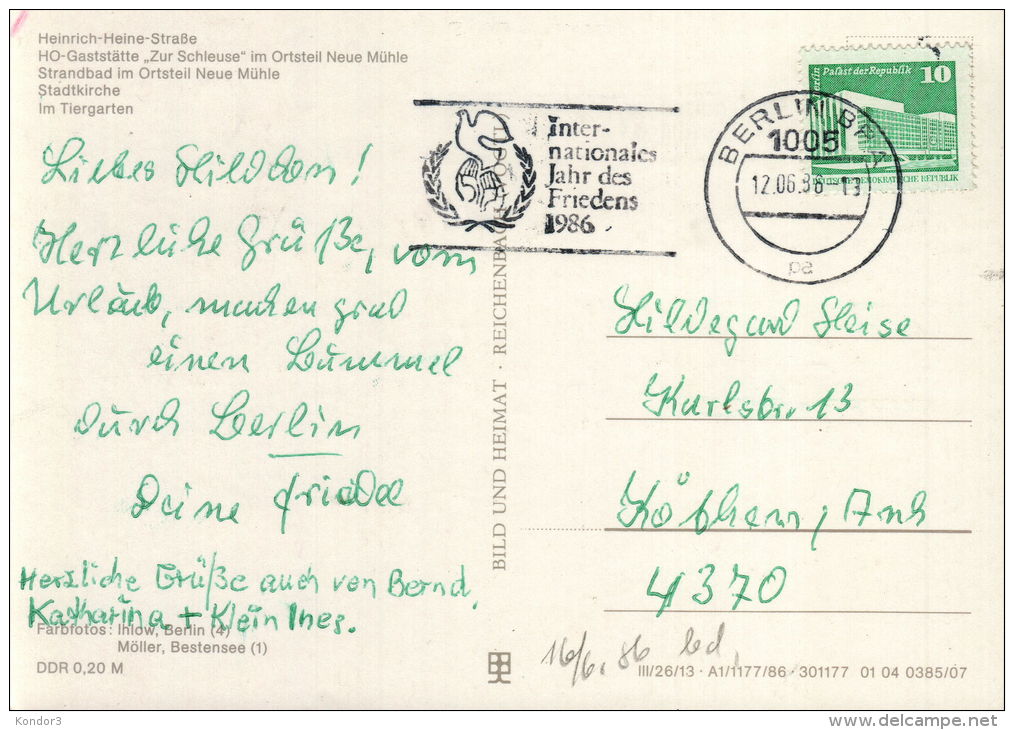 Heinrich-Heine-Straße
HO-Gaststätte „Zur Schleuse" im Ortsteil Neue Mühle
Strandbad im Ortsteil Neue Mühle
Stadtkirche
Im Tiergarten
Liebes Hildchen!
Herzliche Grüße, vom
Urlaub, machen grad
einen Bummel
durch Berlin
Deine Friedel
Herzliche Grüße auch von Bernd,
Katharina + Klein Ines.
Farbfotos: Ihlow, Berlin (4)
Möller, Bestensee (1)
DDR 0,20 M
BILD UND HEIMAT · REICHENBACH
Inter-
nationales
Jahr des
Friedens
1986
BERLIN
1005
12.06.86
pa
Berlin Palast der Republik 10
DEUTSCHE DEMOKRATISCHE REPUBLIK
Hildegard Heise
Karlstr. 13
Köthen, Anh
4370
16/6. 86
III/26/13 · A1/1177/86 · 301177 01 04 0385/07
Kondor3
delcampe.net